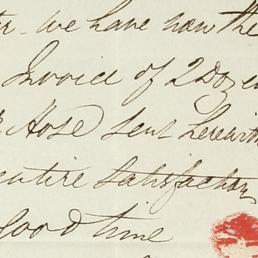 we have now the
Invoice of 2 Doz
Hose sent herewith
entire satisfaction
good time